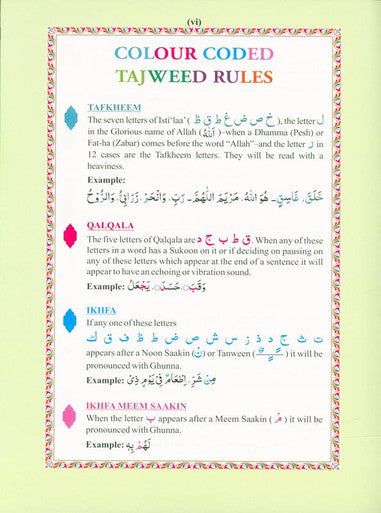 (vi)
COLOUR CODED
TAJWEED RULES
TAFKHEEM
The seven letters of Isti'laa' ( خ ص ض غ ط ق ظ ), the letter ل
in the Glorious name of Allah ( اَللّٰهُ )–when a Dhamma (Pesh) or
Fat-ha (Zabar) comes before the word "Allah"–and the letter ر in
12 cases are the Tafkheem letters. They will be read with a
heaviness.
Example:
خَلَقَ۔ غَاسِقٍ۔ هُوَاللّٰهُ۔ مَرْيَمَ اللّٰهُمَّ۔ رَبِّ۔ وَانْحَرْ۔ زَرَابِيُّ۔ وَالرُّوْحُ
QALQALA
The five letters of Qalqala are ق ط ب ج د. When any of these
letters in a word has a Sukoon on it or if deciding on pausing on
any of these letters which appear at the end of a sentence it will
appear to have an echoing or vibration sound.
Example: وَقَبَ○ حَسَدَ○ يَجْعَلُ
IKHFA
If any one of these letters
ت ث ج د ذ ز س ش ص ض ط ظ ف ق ك
appears after a Noon Saakin (نْ) or Tanween ( ــًــٍــٌ ) it will be
pronounced with Ghunna.
Example: مِنْ شَرِّ۔ اِطْعَامٌ فِيْ يَوْمٍ ذِيْ
IKHFA MEEM SAAKIN
When the letter ب appears after a Meem Saakin ( مْ ) it will be
pronounced with Ghunna.
Example: لَهُمْ بِهٖ